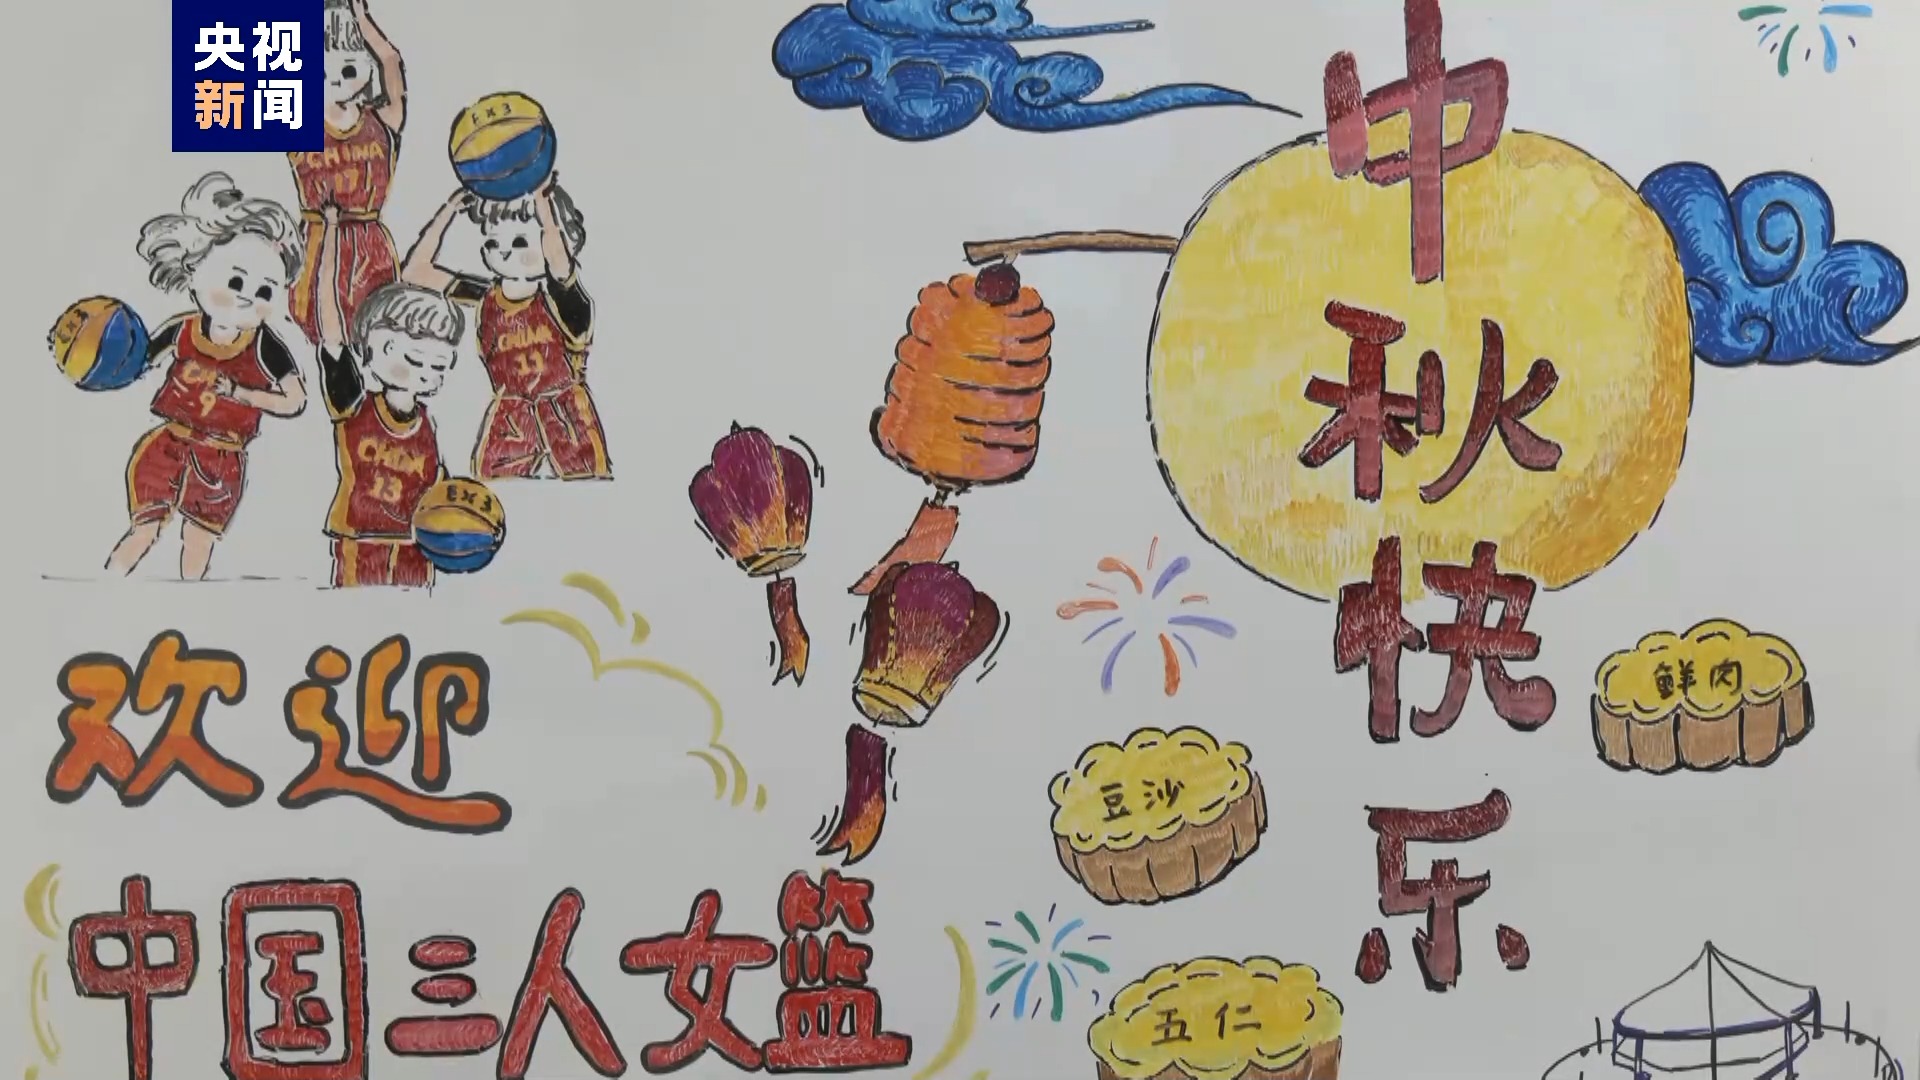 央视
新闻
CHINA
17
EX3
EX3
CHINA
11
CH
9
CHINA
13
EX3
欢迎
中国三人女篮
中秋快乐
鲜肉
豆沙
五仁